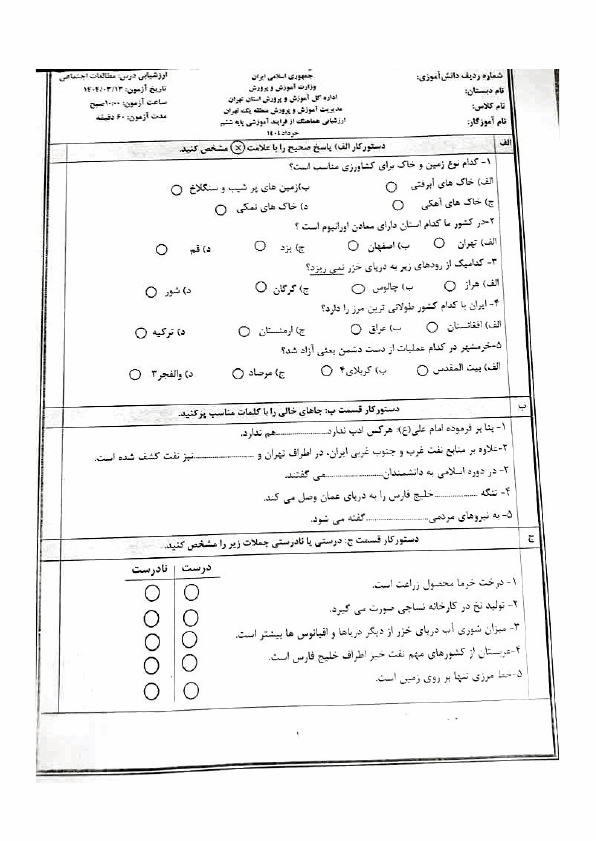 شماره ردیف دانش‌آموزی:
جمهوری اسلامی ایران
ارزشیابی درس: مطالعات اجتماعی
نام دبستان:
وزارت آموزش و پرورش
تاریخ آزمون: ۱۴۰۴/۰۳/۱۳
نام کلاس:
اداره کل آموزش و پرورش استان تهران
ساعت آزمون: ۱۰:۰۰صبح
نام آموزگار:
مدیریت آموزش و پرورش منطقه یک تهران
مدت آزمون: ۶۰ دقیقه
ارزشیابی هماهنگ از فرایند آموزشی پایه ششم
خرداد ۱۴۰۴
الف
دستورکار الف) پاسخ صحیح را با علامت (x) مشخص کنید.
۱- کدام نوع زمین و خاک برای کشاورزی مناسب است؟
الف) خاک های آبرفتی ب)زمین های پر شیب و سنگلاخ
ج) خاک های آهکی د) خاک های نمکی
۲-در کشور ما کدام استان دارای معادن اورانیوم است ؟
الف) تهران ب) اصفهان ج) یزد د) قم
۳- کدامیک از رودهای زیر به دریای خزر نمی ریزد؟
الف) هراز ب) چالوس ج) گرگان د) شور
۴- ایران با کدام کشور طولانی ترین مرز را دارد؟
الف) افغانستان ب) عراق ج) ارمنستان د) ترکیه
۵-خرمشهر در کدام عملیات از دست دشمن بعثی آزاد شد؟
الف) بیت المقدس ب) کربلای۴ ج) مرصاد د) والفجر۳
ب
دستورکار قسمت ب: جاهای خالی را با کلمات مناسب پرکنید.
۱- بنا بر فرموده امام علی(ع): هرکس ادب ندارد................هم ندارد.
۲-علاوه بر منابع نفت غرب و جنوب غربی ایران، در اطراف تهران و ................نیز نفت کشف شده است.
۲- در دوره اسلامی به دانشمندان................می گفتند.
۴- تنگه ............خلیج فارس را به دریای عمان وصل می کند.
۵- به نیروهای مردمی................گفته می شود.
ج
دستورکار قسمت ج: درستی یا نادرستی جملات زیر را مشخص کنید.
درست نادرست
۱- درخت خرما محصول زراعت است.
۲- تولید نخ در کارخانه نساجی صورت می گیرد.
۳- میزان شوری آب دریای خزر از دیگر دریاها و اقیانوس ها بیشتر است.
۴-عربستان از کشورهای مهم نفت خیز اطراف خلیج فارس است.
۵-خط مرزی تنها بر روی زمین است.
۱